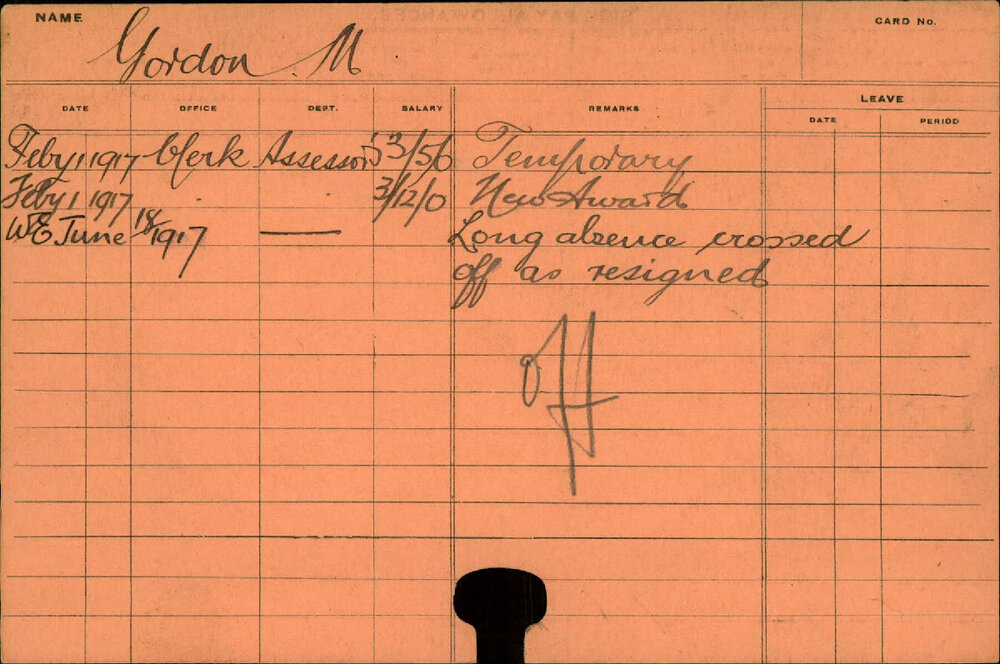 NAME
CARD No.
Gordon M
DATE OFFICE DEPT. SALARY REMARKS LEAVE
DATE PERIOD
Feby 1 1917 Clerk Assessors 3/5/6 Temporary
Feby 1 1917 3/12/0 New Award
WE June 18/1917 — Long absence crossed
off as resigned
off